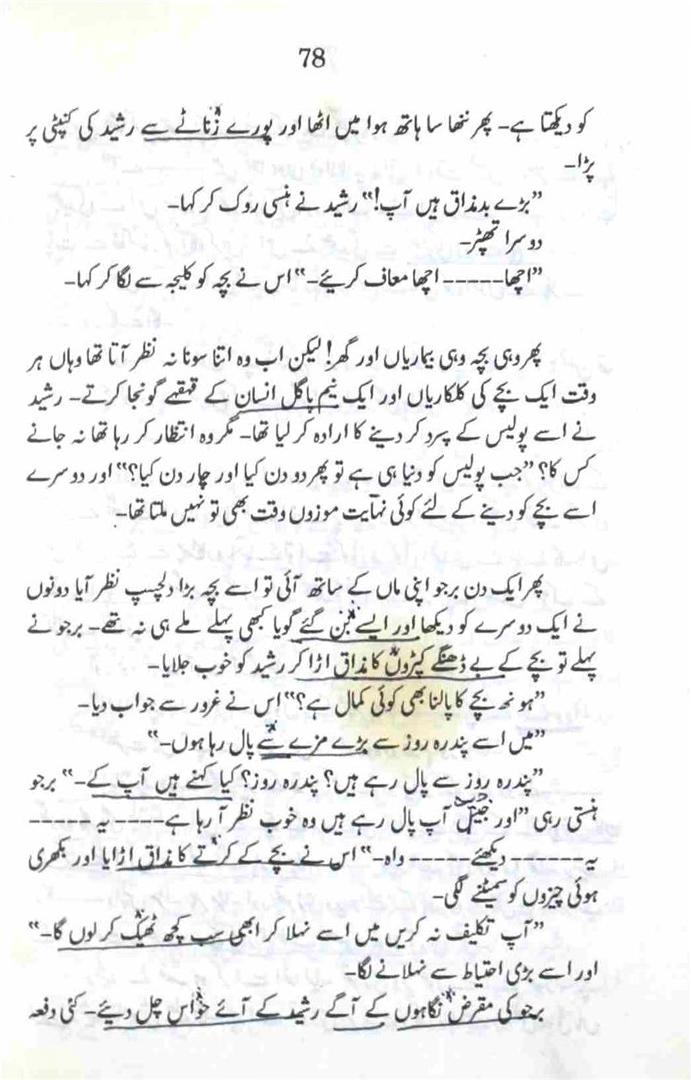 78
کو دیکھتا ہے۔ پھر ننھا سا ہاتھ ہوا میں اٹھا اور پورے زناٹے سے رشید کی کنپٹی پر
پڑا۔
”بڑے بدمذاق ہیں آپ!“ رشید نے ہنسی روک کر کہا۔
دوسرا تھپڑ۔
”اچھا----- اچھا معاف کریئے۔“ اس نے بچہ کو کلیجہ سے لگا کر کہا۔
پھر وہی بچہ وہی بیماریاں اور گھر! لیکن اب وہ اتنا سونا نہ نظر آتا تھا وہاں ہر
وقت ایک بچے کی کلکاریاں اور ایک نیم پاگل انسان کے قہقہے گونجا کرتے۔ رشید
نے اسے پولیس کے سپرد کر دینے کا ارادہ کر لیا تھا۔ مگر وہ انتظار کر رہا تھا نہ جانے
کس کا؟ ”جب پولیس کو دنیا ہی ہے تو پھر دو دن کیا اور چار دن کیا؟“ اور دوسرے
اسے بچے کو دینے کے لئے کوئی نہایت موزوں وقت بھی تو نہیں ملتا تھا۔
پھر ایک دن برجو اپنی ماں کے ساتھ آئی تو اسے بچہ بڑا دلچسپ نظر آیا دونوں
نے ایک دوسرے کو دیکھا اور ایسے بن گئے گویا کبھی پہلے ملے ہی نہ تھے۔ برجو نے
پہلے تو بچے کے بے ڈھنگے کپڑوں کا مذاق اڑا کر رشید کو خوب جلایا۔
”ہونھ بچے کا پالنا بھی کوئی کمال ہے؟“ اس نے غرور سے جواب دیا۔
”میں اسے پندرہ روز سے بڑے مزے سے پال رہا ہوں۔“
”پندرہ روز سے پال رہے ہیں؟ پندرہ روز؟ کیا کہنے ہیں آپ کے۔“ برجو
ہنستی رہی ”اور آپ پال رہے ہیں وہ خوب نظر آ رہا ہے----- یہ------
یہ------ دیکھئے----- واہ۔“ اس نے بچے کے کرتے کا مذاق اڑایا اور بکھری
ہوئی چیزوں کو سمیٹنے لگی۔
”آپ تکلیف نہ کریں میں اسے نہلا کر ابھی سب کچھ ٹھیک کر لوں گا۔“
اور اسے بڑی احتیاط سے نہلانے لگا۔
برجو کی مقرض نگاہوں کے آگے رشید کے آئے حواس چل دیئے۔ کئی دفعہ